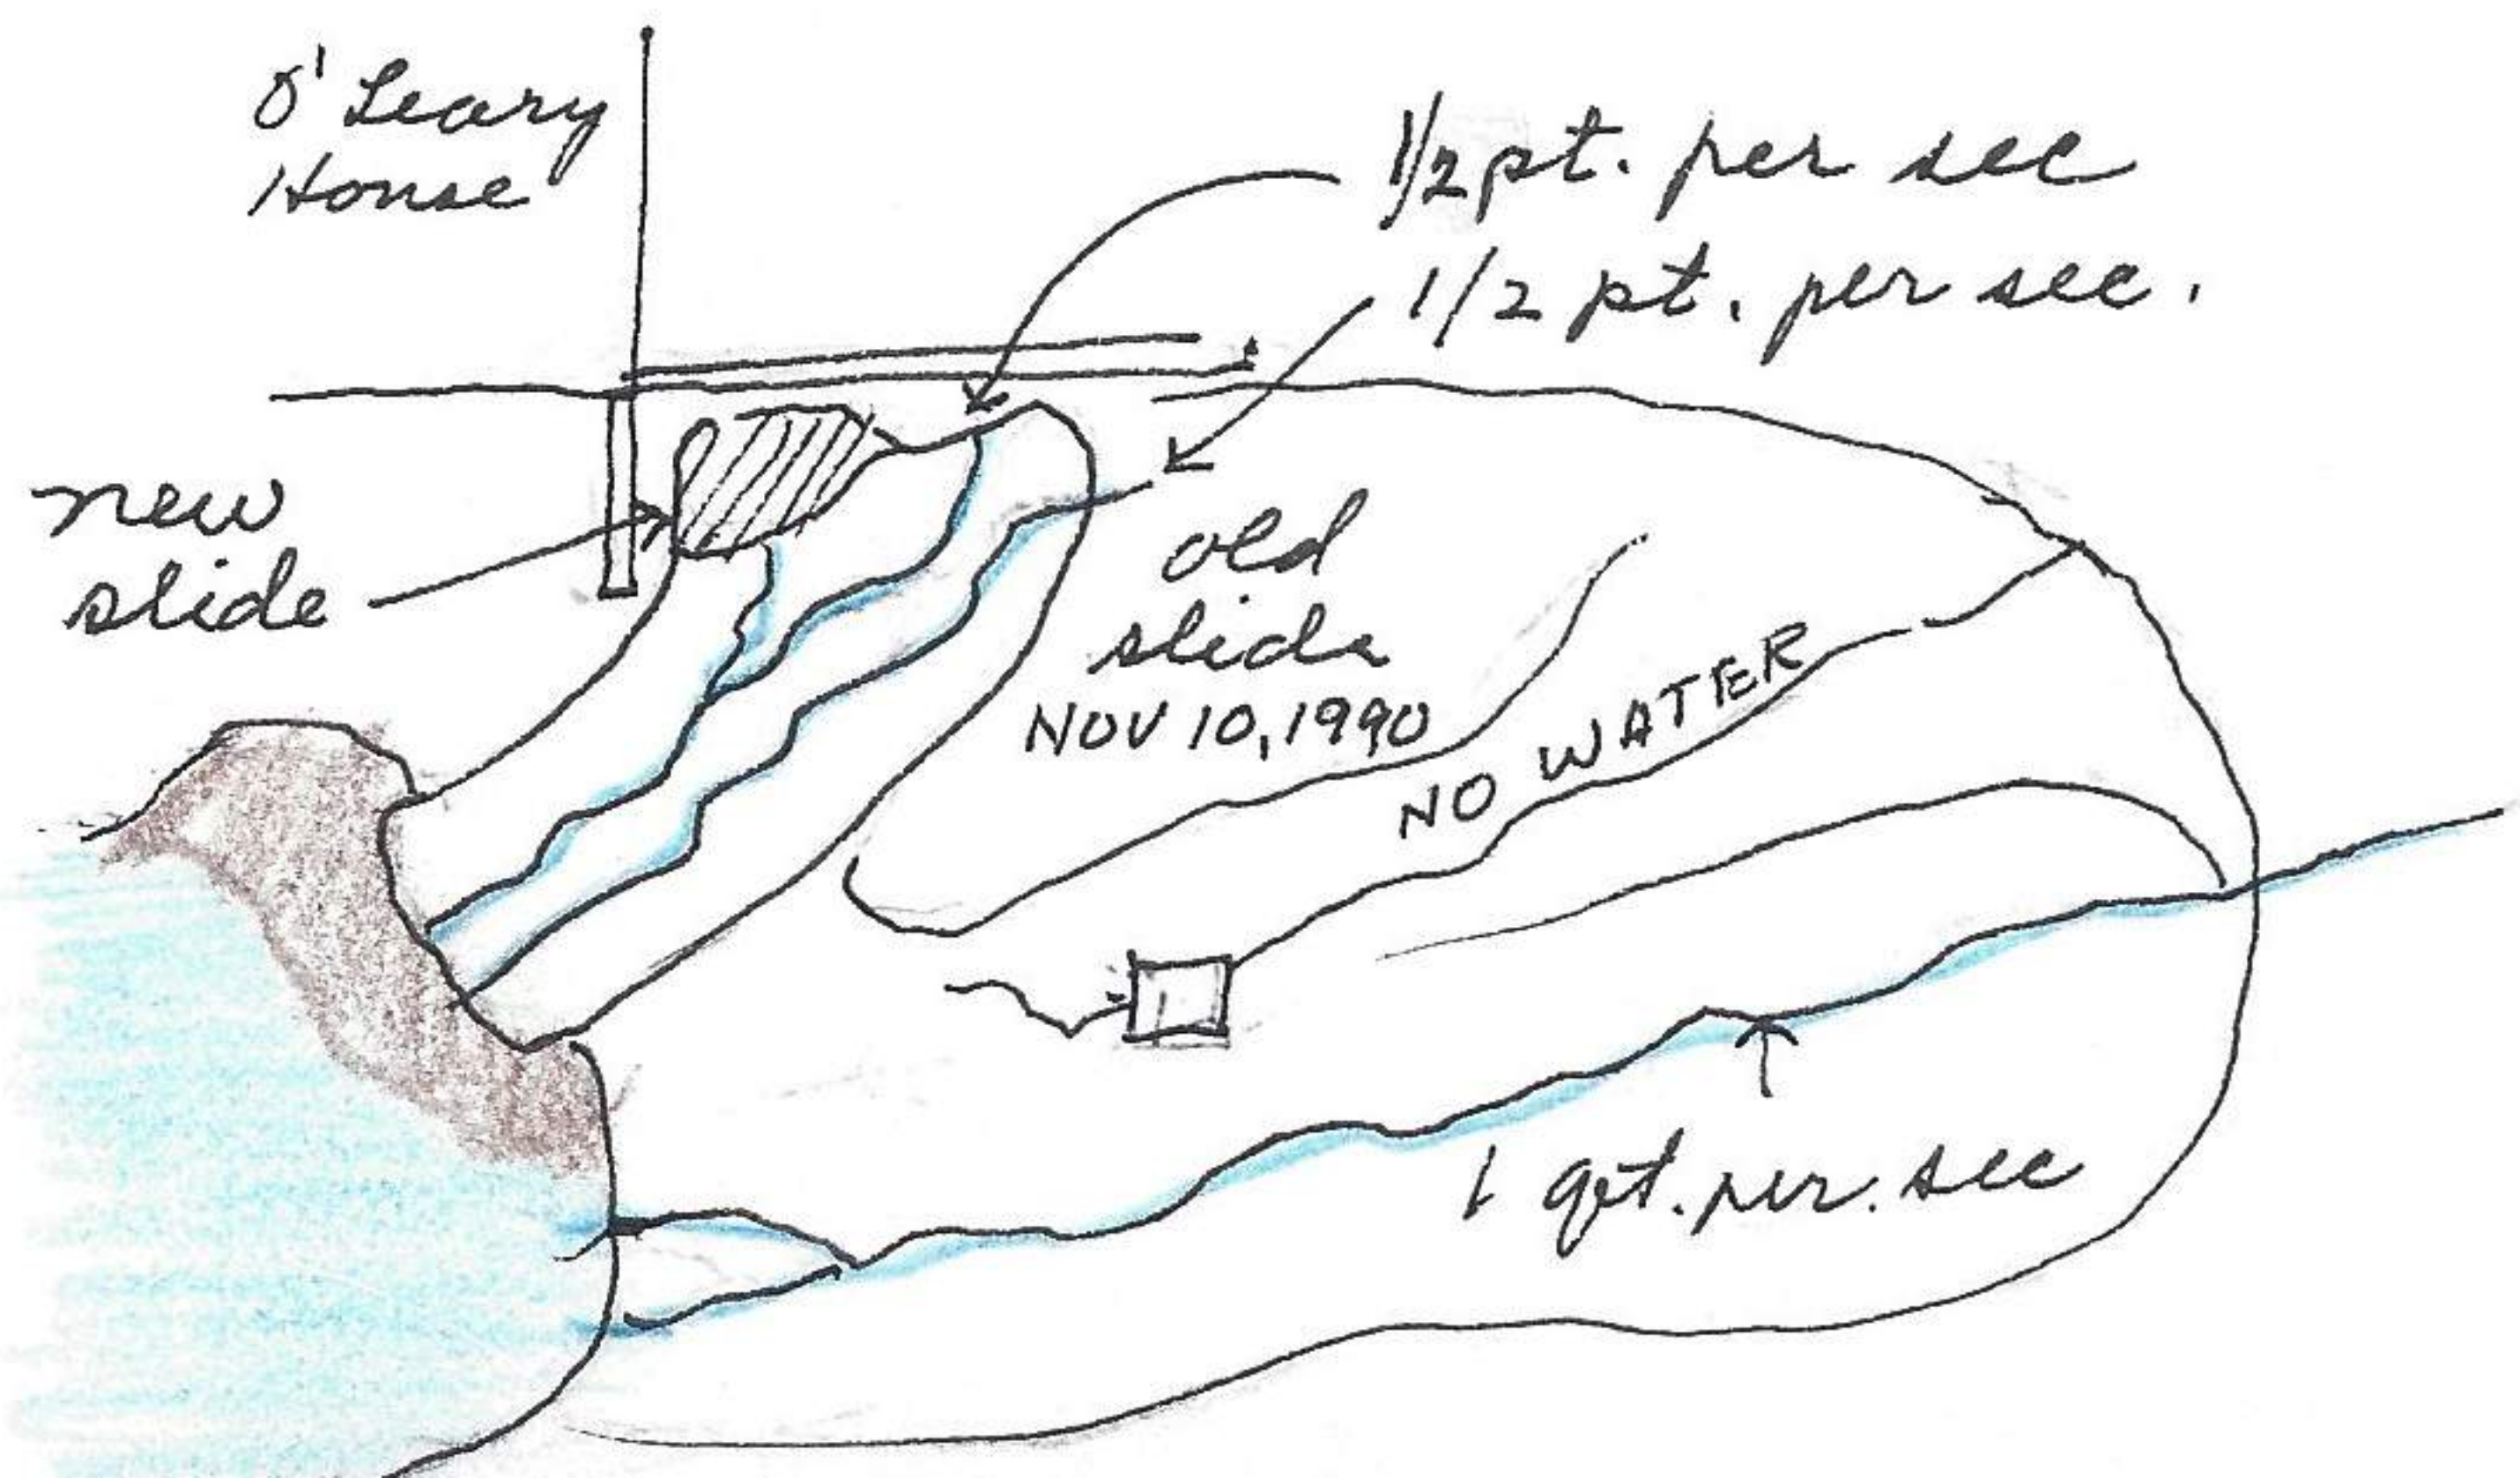 O'Leary
House
1/2 pt. per sec
1/2 pt. per sec.
new
slide
old
slide
NOV 10, 1990
NO WATER
1 qt. per. sec